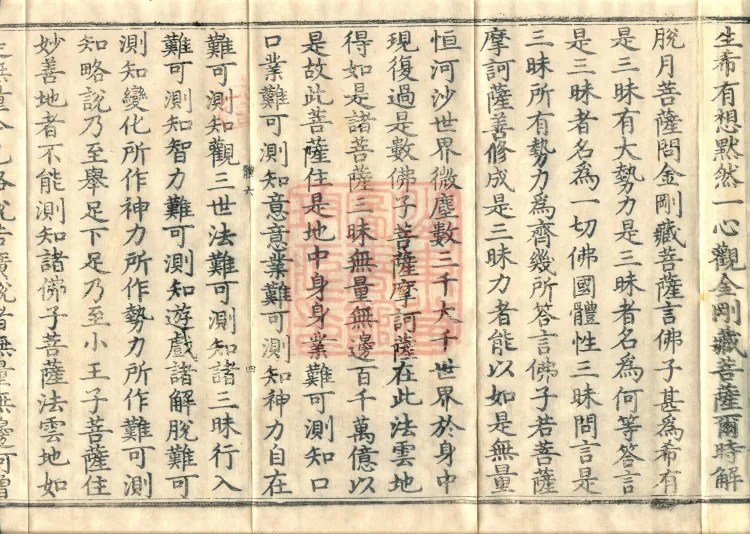 生希有想默然一心觀金剛藏菩薩爾時解
脫月菩薩問金剛藏菩薩言佛子甚為希有
是三昧有大勢力是三昧者名為何等答言
是三昧者名為一切佛國體性三昧問言是
三昧所有勢力為齊幾所答言佛子若菩薩
摩訶薩善修成是三昧力者能以如是無量
恒河沙世界微塵數三千大千世界於身中
現復過是數佛子菩薩摩訶薩在此法雲地
得如是諸菩薩三昧無量無邊百千萬億以
是故此菩薩住是地中身身業難可測知口
口業難可測知意意業難可測知神力自在
難可測知觀三世法難可測知諸三昧行入
難可測知智力難可測知遊戲諸解脫難可
測知變化所作神力所作勢力所作難可測
知略說乃至舉足下足乃至小王子菩薩住
妙善地者不能測知諸佛子菩薩法雲地如
是無量今已略說若廣說者無量無邊